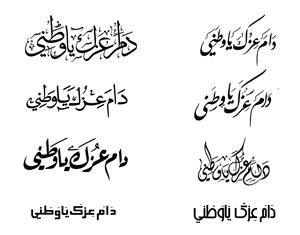 دام عزك يا وطني
دام عزك يا وطني
دام عزك يا وطني
دام عزك يا وطني
دام عزك يا وطني
دام عزك يا وطني
دام عزك يا وطني
دام عزك يا وطني